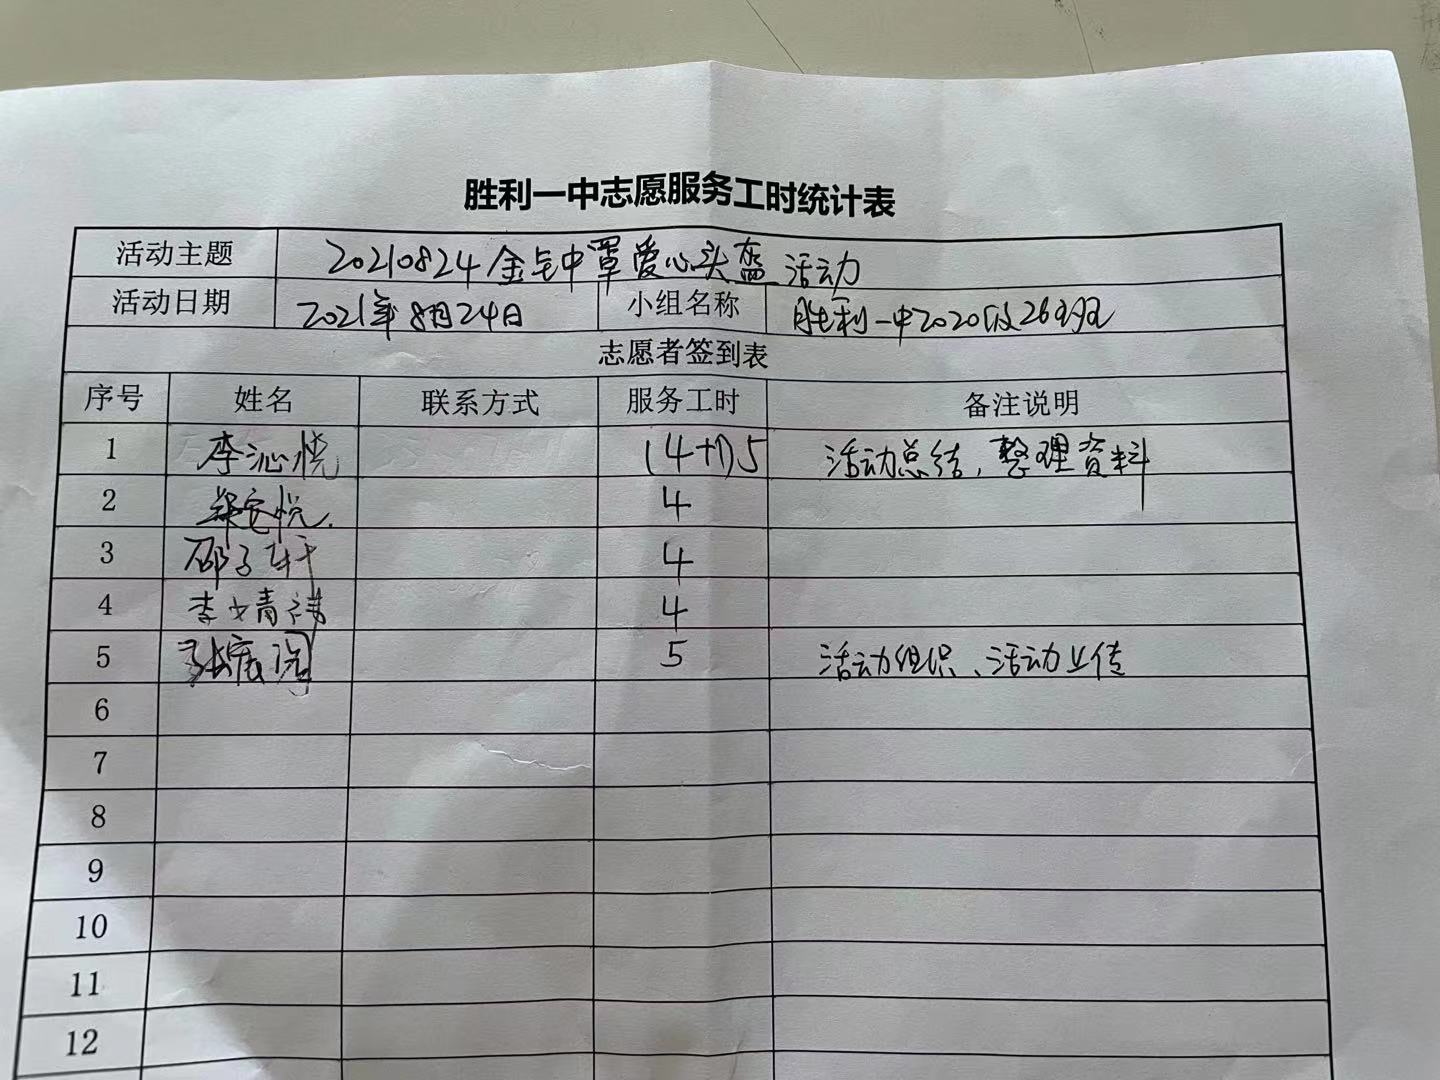 胜利一中志愿服务工时统计表
活动主题 20210824金钟罩爱心头盔活动
活动日期 2021年8月24日 小组名称 胜利一中2020级26班
志愿者签到表
序号 姓名 联系方式 服务工时 备注说明
1 李沁悦 (4+1)5 活动总结、整理资料
2 4
3 邵子轩 4
4 李 4
5 张 5 活动组织、活动上传
6
7
8
9
10
11
12